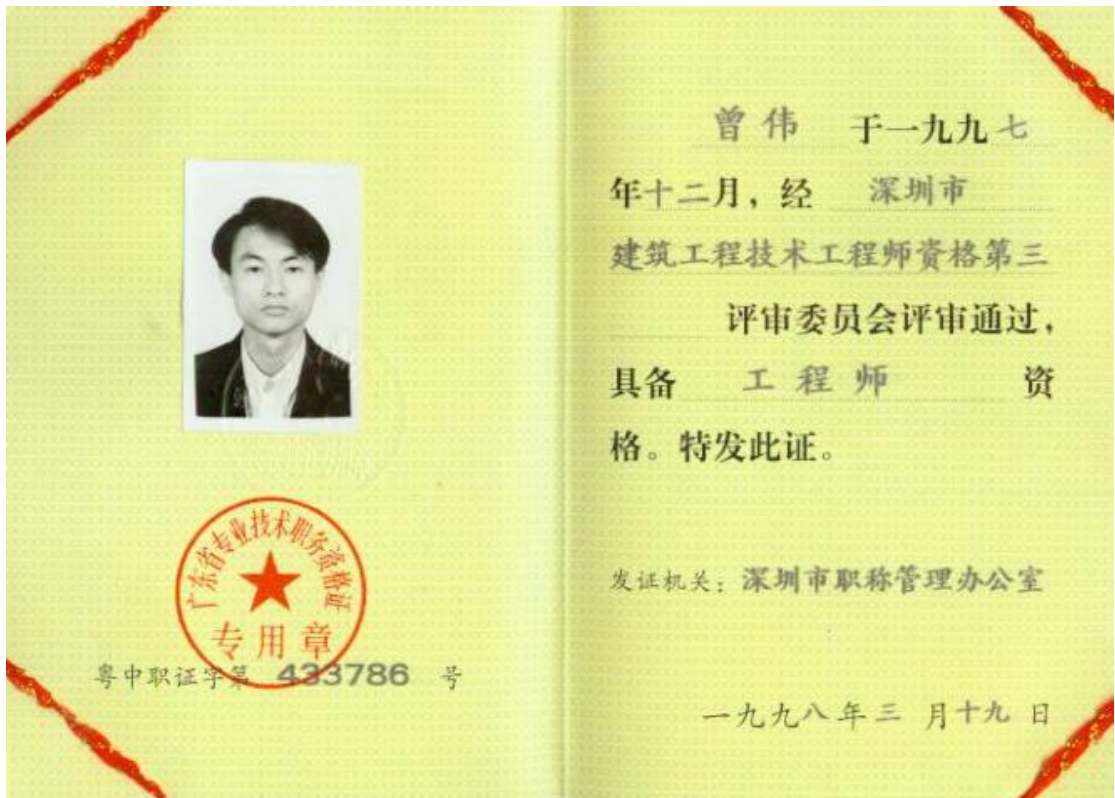 广东省专业技术职务资格证
专用章
粤中职证字第 433786 号
曾伟 于一九九七
年十二月，经 深圳市
建筑工程技术工程师资格第三
评审委员会评审通过，
具备 工程师 资
格。特发此证。
发证机关：深圳市职称管理办公室
一九九八年三月十九日